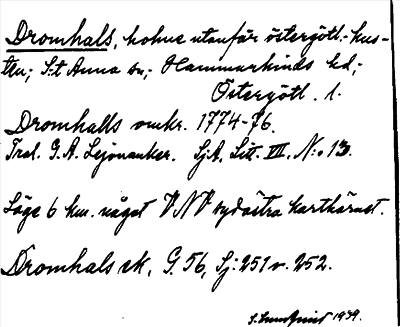 Dromhals, holme utanför östergötl.-kus-
ten; S:t Anna sn; Hammarkinds hd;
Östergötl. l.
Dromhalls omkr. 1774-76.
Trol. G. A. Lejonanker. SjA, Litt. III. N:o 13.
Läge 6 km. något VNV sydöstra karthörnet.
Dromhals ek, G. 56, Sj: 251 o. 252.
1939.